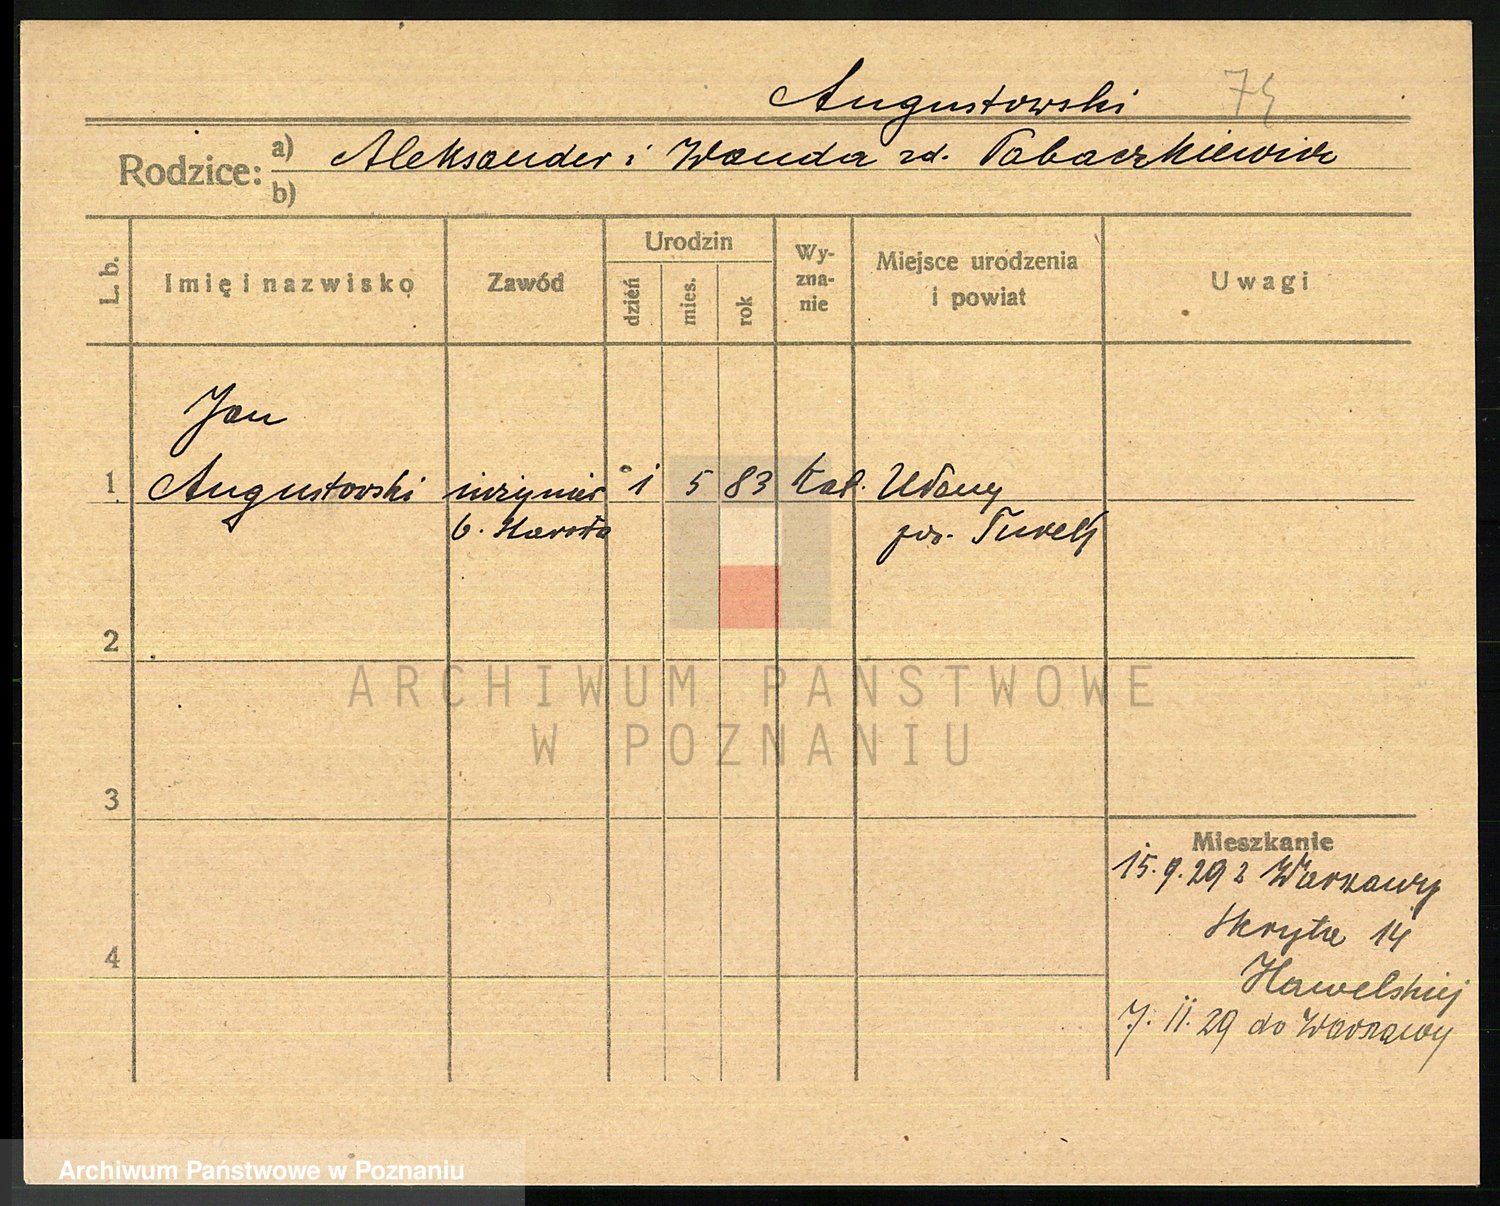 Augustowski 74
Rodzice: a) Aleksander i Wanda zd. Tabaczkiewicz
b)
L. b.
Imię i nazwisko
Zawód
Urodzin
dzień
mies.
rok
Wy-
zna-
nie
Miejsce urodzenia
i powiat
Uwagi
Jan
1 Augustowski inżynier 1 5 83 Kat.
b. pow. Turek
2
3
4
Mieszkanie
15.9.29 z Warszawy
Skryta 14
7.11.29 do Warszawy
ARCHIWUM PAŃSTWOWE
W POZNANIU
Archiwum Państwowe w Poznaniu